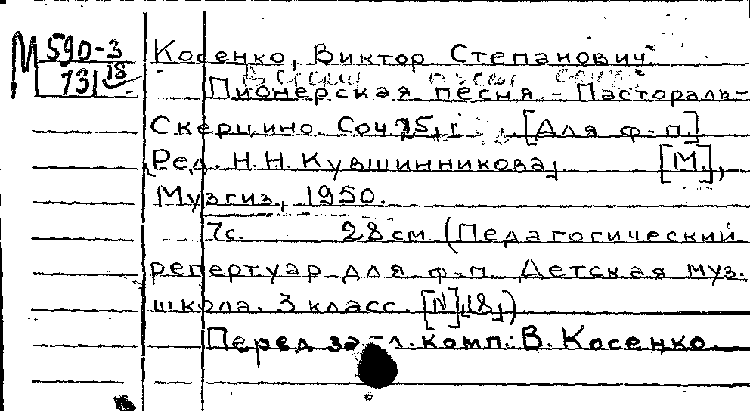 М 590-3
731 18
Косенко, Виктор Степанович
Пионерская песня - Пастораль-
Скерцино. Соч 15, [Для ф-п]
Ред. Н.Н. Кувшинникова, [М.],
Музгиз, 1950.
7с. 28 см (Педагогический
репертуар для ф-п Детская муз.
школа. 3 класс. [N] 8,)
Перед загл. комп: В. Косенко.